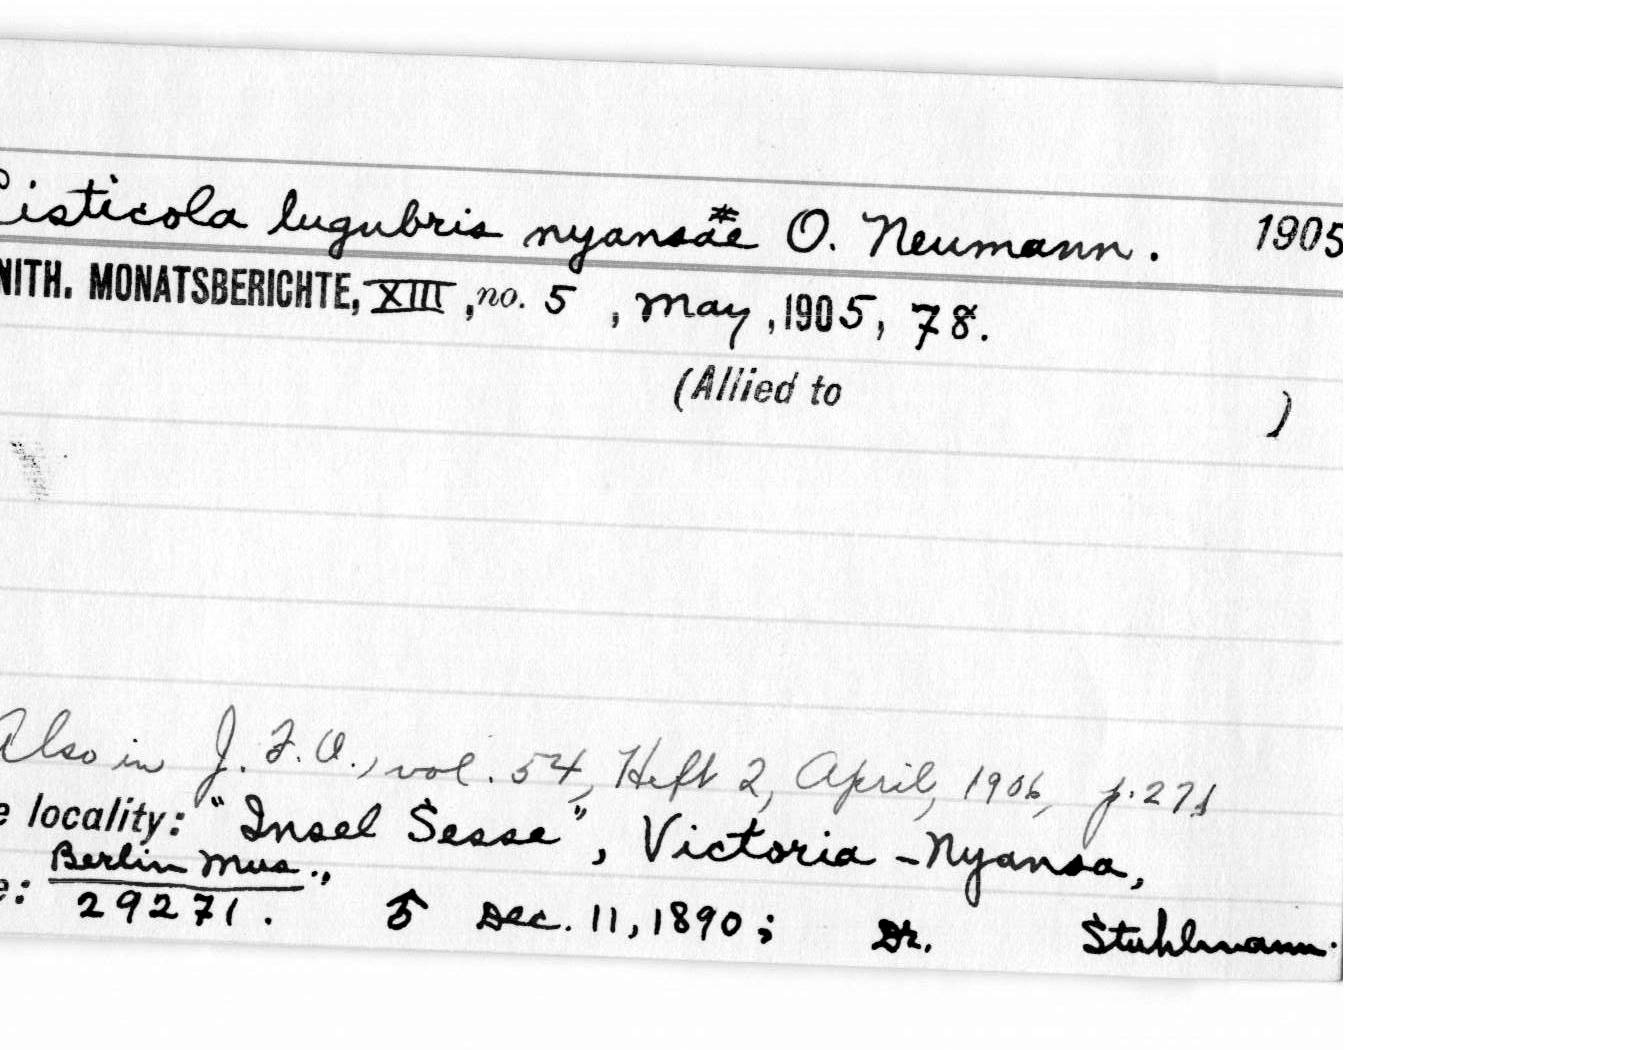 Cisticola lugubris nyansae* O. Neumann. 1905
NITH. MONATSBERICHTE, XIII, no. 5, May, 1905, 78.
(Allied to )
Also in J. F. O., vol. 54, Heft 2, April, 1906, p. 271
e locality: "Insel Sesse", Victoria-Nyansa,
e: Berlin Mus.,
29271. ♂ Dec. 11, 1890; Dr. Stuhlmann.